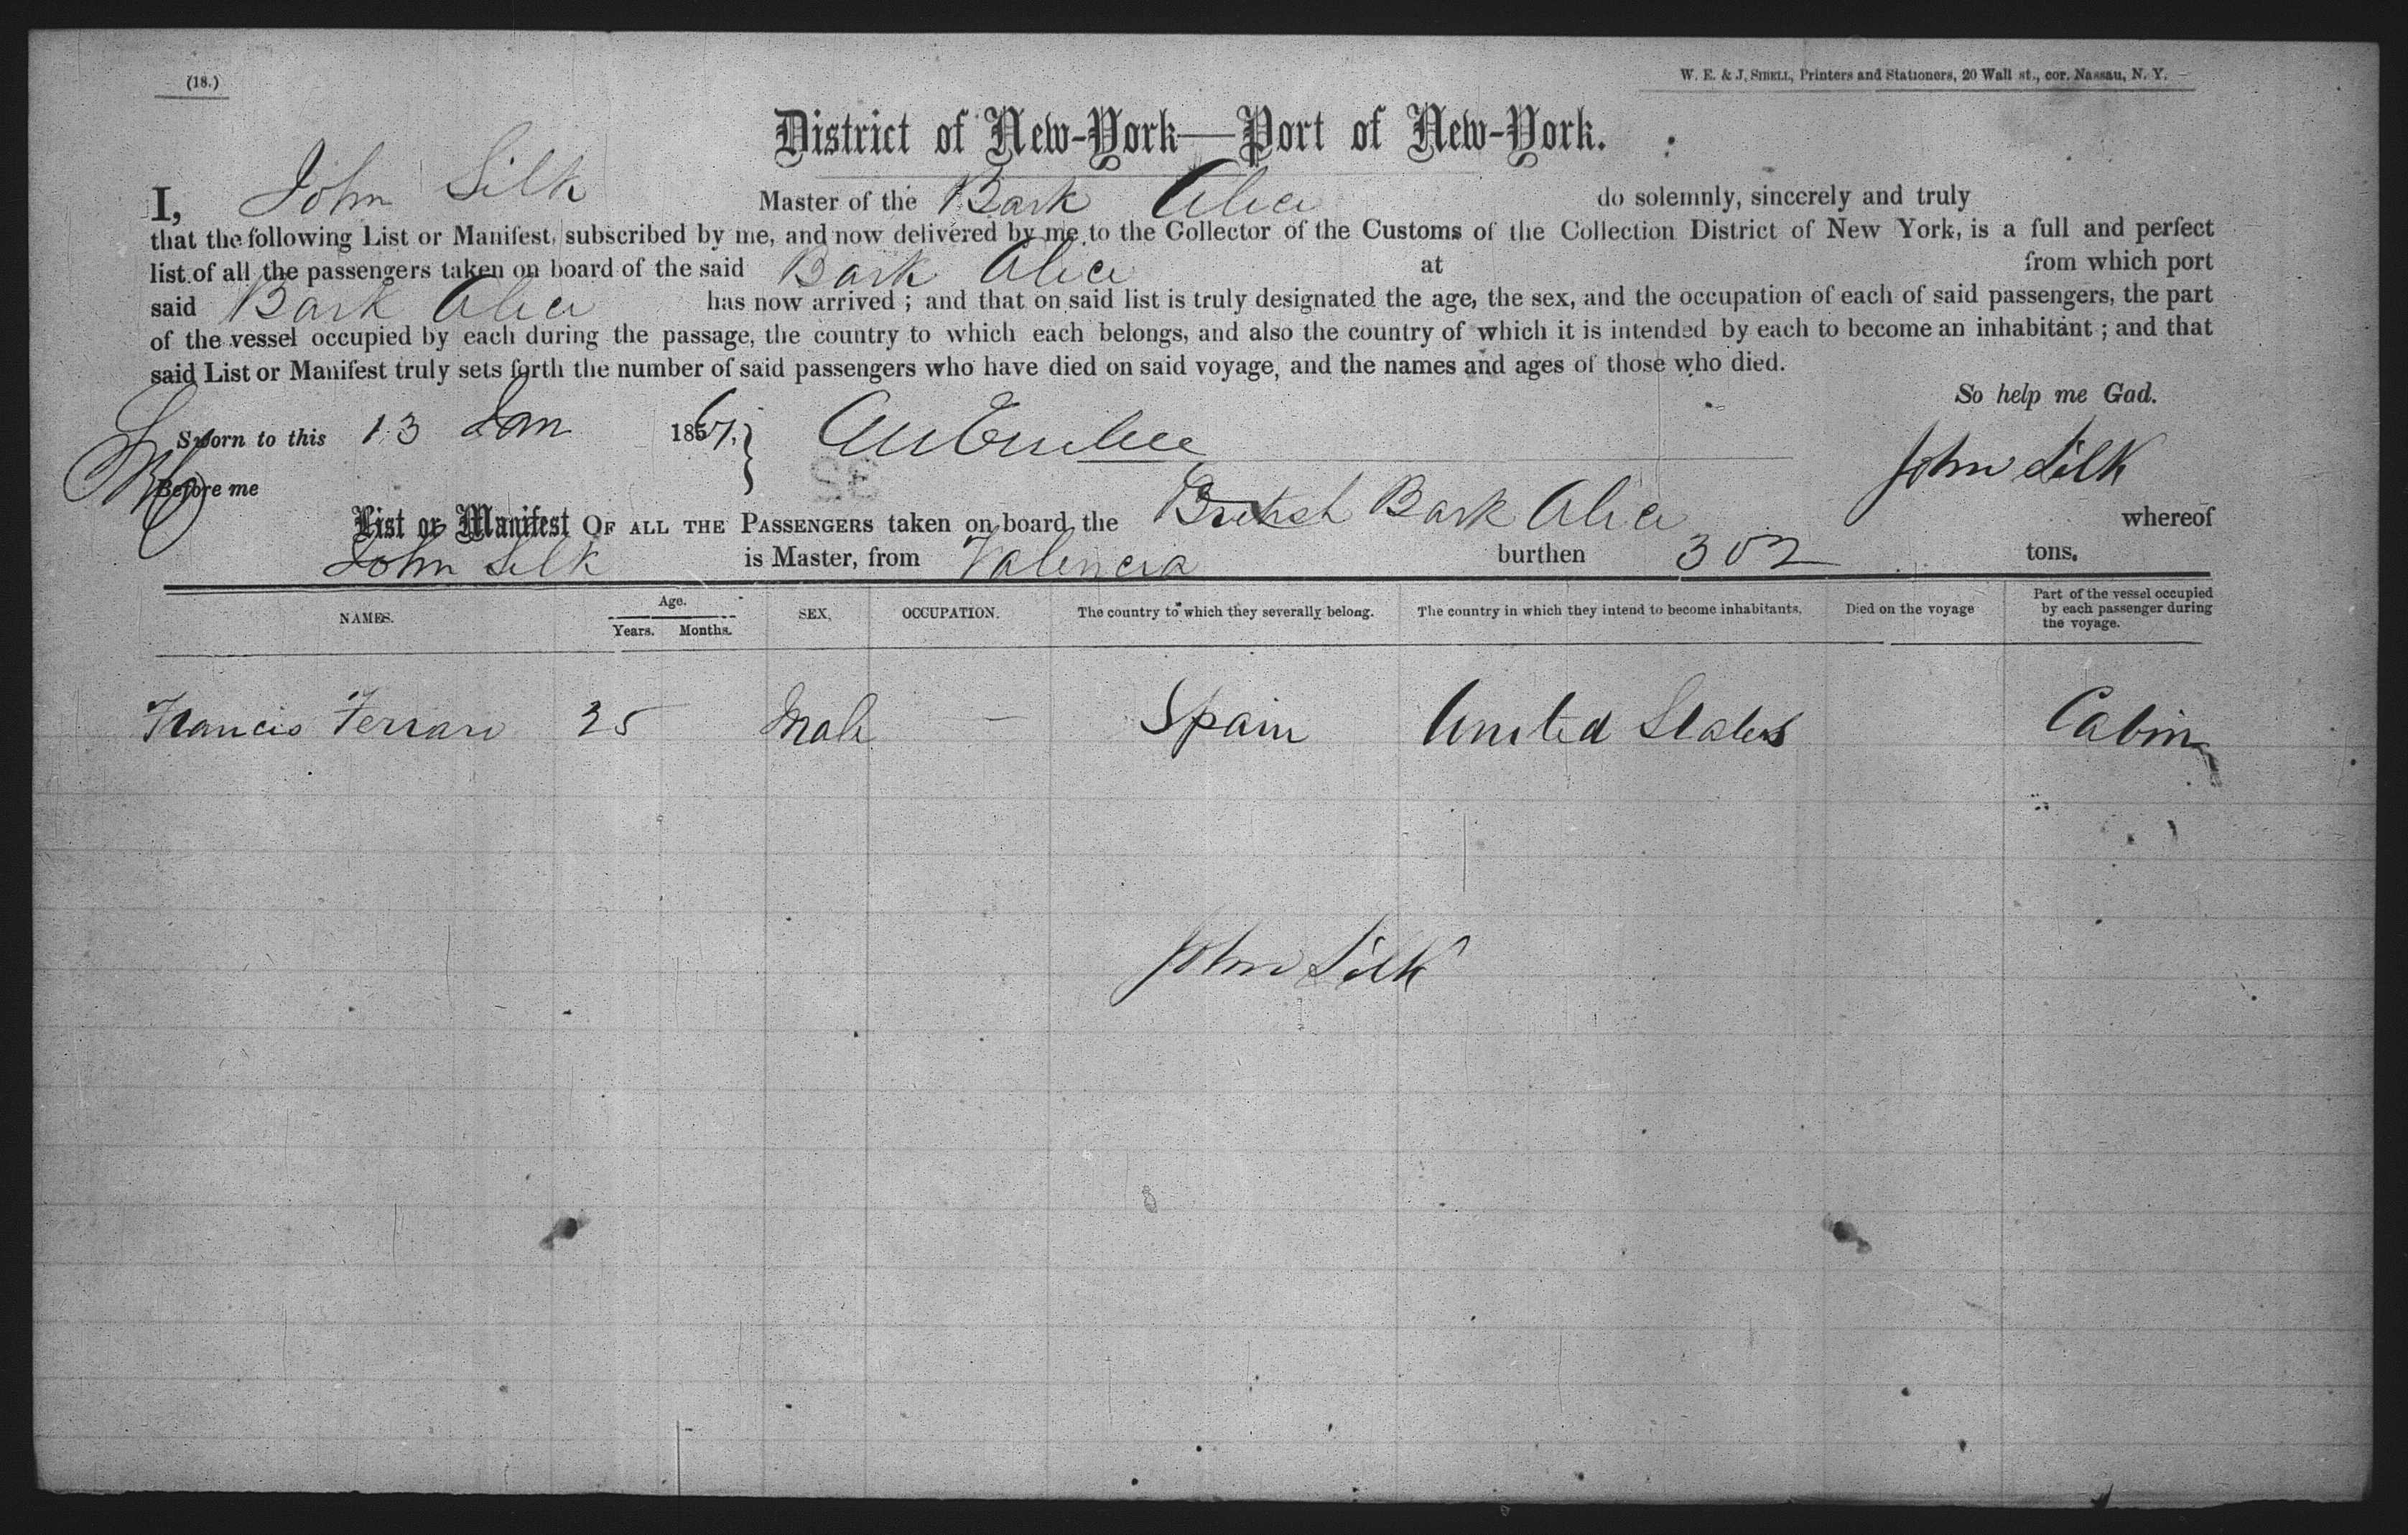 (18.)
W. E. & J. SIBELL, Printers and Stationers, 20 Wall st., cor. Nassau, N. Y.
District of New-York—Port of New-York.
I, John Silk Master of the Bark Alice do solemnly, sincerely and truly
that the following List or Manifest, subscribed by me, and now delivered by me to the Collector of the Customs of the Collection District of New York, is a full and perfect
list of all the passengers taken on board of the said Bark Alice at from which port
said Bark Alice has now arrived ; and that on said list is truly designated the age, the sex, and the occupation of each of said passengers, the part
of the vessel occupied by each during the passage, the country to which each belongs, and also the country of which it is intended by each to become an inhabitant ; and that
said List or Manifest truly sets forth the number of said passengers who have died on said voyage, and the names and ages of those who died.
So help me God.
Sworn to this 13 Jan 1861. John Silk
Before me
List or Manifest OF ALL THE PASSENGERS taken on board the British Bark Alice whereof
John Silk is Master, from Valencia burthen 302 tons.
NAMES. Age. Years. Months. SEX. OCCUPATION. The country to which they severally belong. The country in which they intend to become inhabitants. Died on the voyage Part of the vessel occupied by each passenger during the voyage.
Francis Ferraro 25 Male — Spain United States Cabin
John Silk